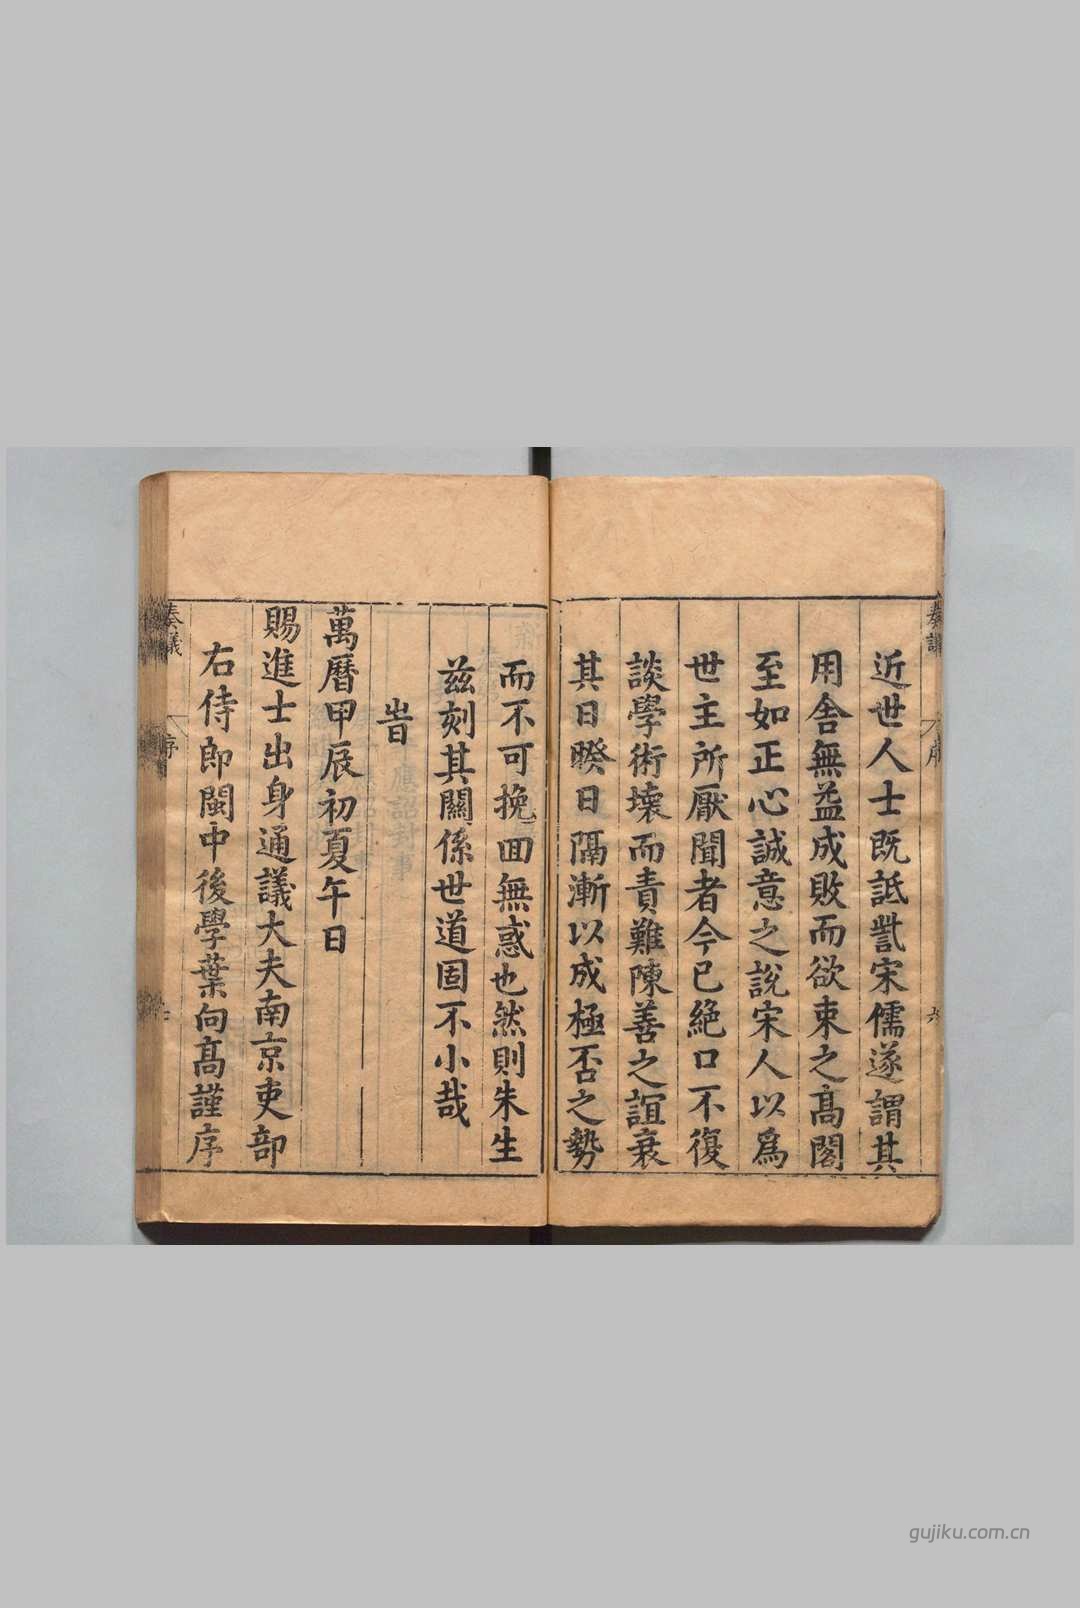 奏議
序
六
近世人士既詆訾宋儒遂謂其
用舍無益成敗而欲束之高閣
至如正心誠意之說宋人以爲
世主所厭聞者今已絕口不復
談學術壞而責難陳善之誼衰
其日暌日隔漸以成極否之勢
而不可挽回無惑也然則朱生
茲刻其關係世道固不小哉
旹
萬曆甲辰初夏午日
賜進士出身通議大夫南京吏部
右侍郎閩中後學葉向高謹序
奏議
序
gujiku.com.cn